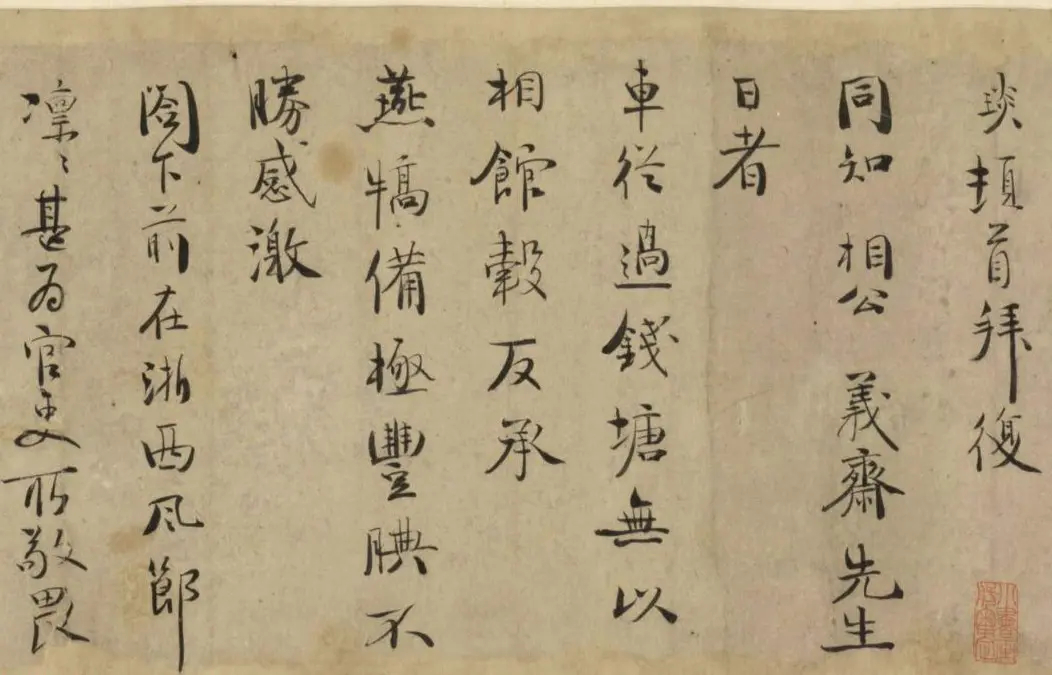 琰頓首拜復
同知相公義齋先生
日者
車從過錢塘無以
相館穀反承
燕犒備極豐腆不
勝感激
閤下前在浙西風節
凜〻甚為官吏所敬畏